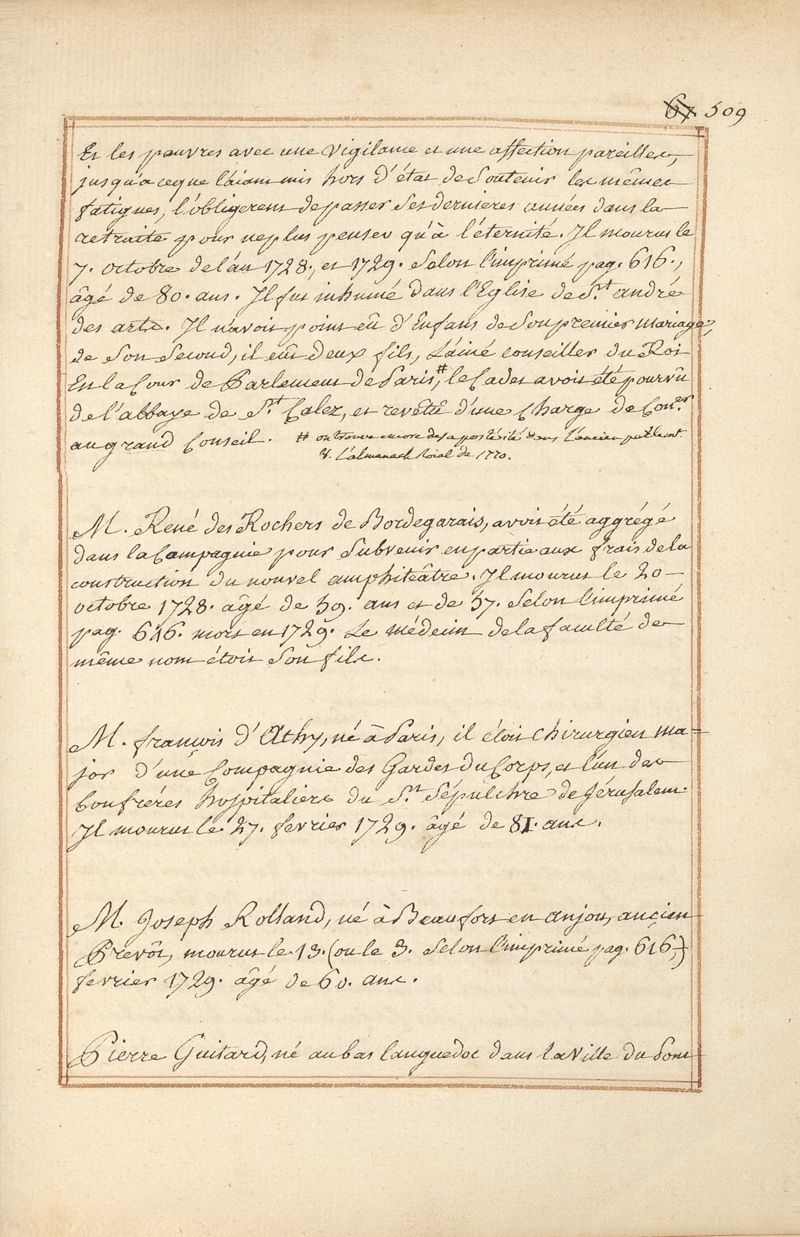 67 509
Et les pauvres avec une vigilance et une affection pareilles,
jusqu'a ceque l'aiant mis hors d'état de Soutenir les mêmes
fatigues, l'obligerent de passer Ses dernieres années dans la
retraite pour ne plus penser qu'à l'éternité. Il mourut le
7. octobre de l'an 1728., et 1729. Selon l'imprimé pag. 616.,
âgé de 80. ans. Il fut inhumé dans l'Eglise de St. andré
des arts. Il n'avoit point eû d'Enfans de Son premier mariage,
de Son Second, il eut deux fils, L'ainé conseiller du Roi
En la Cour de Parlement de Paris,# le Cadet avoit été pourvû
de l'abbaye de St. Calez, et revêtu d'une Charge de Coner.
au grand Conseil. # on trouve encore de sa postérité dans l'ancien parlement
V. l'almanach Roial de 1770.
M. René des Rochers de Bordegarais, avoit été aggrégé
dans la Compagnie pour Subvenir en partie aux frais de la
construction du nouvel amphiteâtre. Il mourut le 20
octobre 1728. âgé de 59. ans et de 57. Selon l'imprimé
pag. 616. mort en 1729. Le médecin de la faculté de
même nom étoit Son fils.
M. françois d'Athy, né à Paris, il étoit Chirurgien ma=
jor d'une Compagnie des Gardes du Corps, et l'un des
Confréres hospitaliers du St. Sépulchre de Jérusalem.
Il mourut le 27. fevrier 1729. âgé de 81. ans.
M. Joseph Rolland, né à Beaufort en anjou, ancien
Prevôt, mourut le 13. (ou le 3. Selon l'imprimé pag. 616,)
fevrier 1729. âgé de 60. ans.
Pierre Guitard, né au bas languedoc dans la Ville du Pont